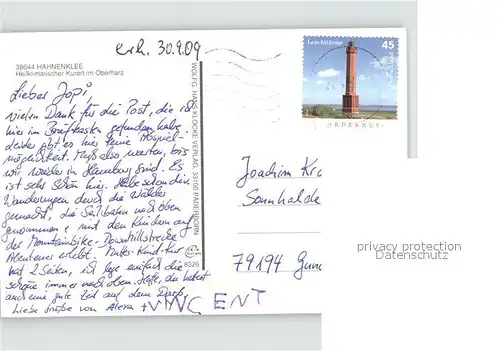 erh. 30.9.09
38644 HAHNENKLEE
Heilklimatischer Kurort im Oberharz
Lieber Jopi,
vielen Dank für die Post, die ich
hier im Briefkasten gefunden habe
leider gibt es hier keine
möglichkeit. Muß also warten, bis
wir wieder in Hamburg sind. Es
ist sehr schön hier. Habe schon div.
Wanderungen durch die Wälder
gemacht, die Seilbahn nach oben
genommen & mit den Kindern auf
der Mountainbike-Downhillstrecke
Abenteuer erlebt. Mutter-Kind-Kur
hat 2 Seiten, ich lege einfach die
schöne immer nach oben. Hoffe, du hattest
auch eine gute Zeit auf dem
Liebe Grüße von Alexa +
VINCENT
WOLFG. HANS KLOCKE VERLAG, 33100 PADERBORN
8326
Leuchttürme
45
NORDERNEY
Joachim
Sonnhalde
79194
privacy protection
AnsichtskartenVersand.com